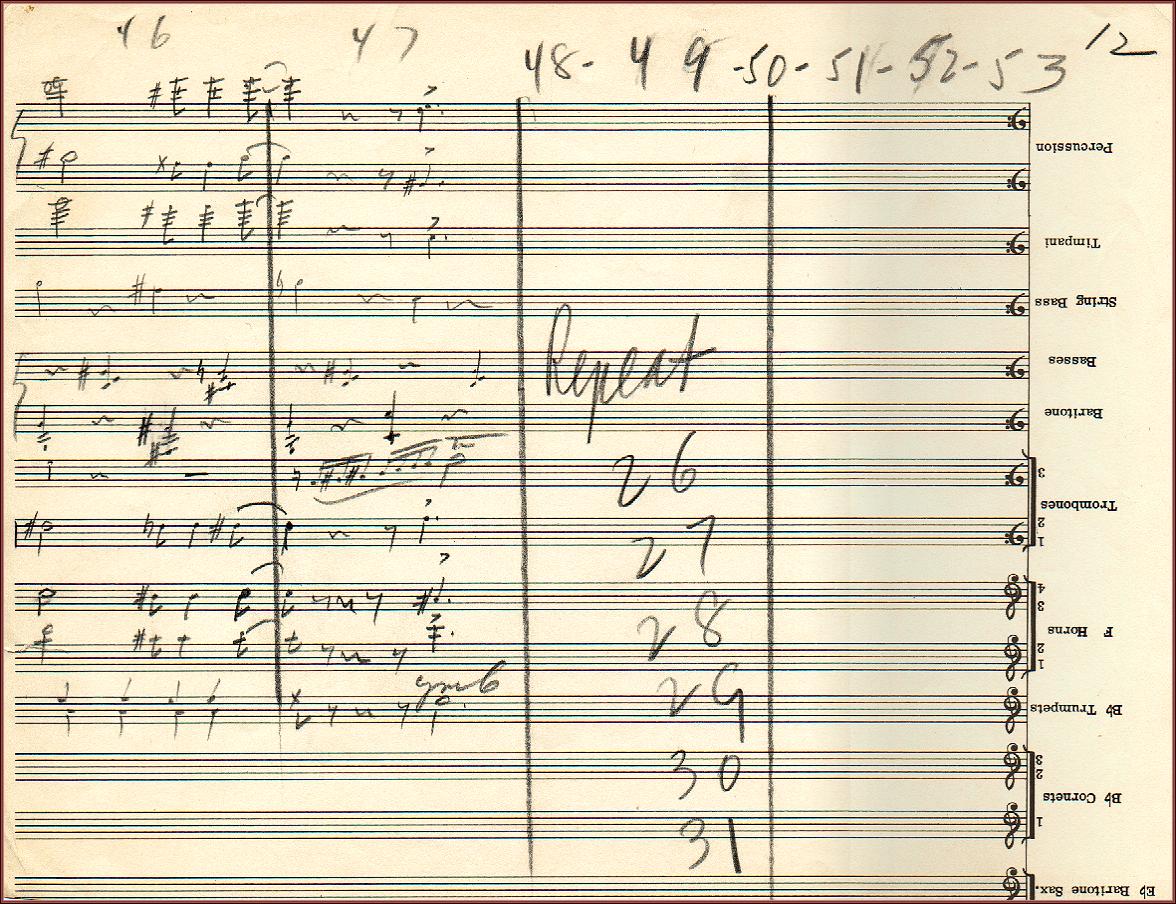 46 47 48- 49 -50- 51- 52- 53 12
Percussion
Timpani
String Bass
Basses
Repeat
Baritone
26
3
Trombones
2
1
27
4
3
28
F Horns
2
1
29
B♭ Trumpets
30
3
2
B♭ Cornets
1
31
E♭ Baritone Sax.